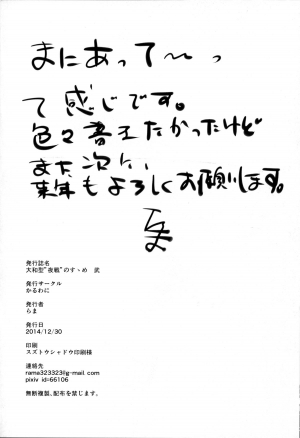 まにあって〜っ
て感じです。
色々書きたかったけど
また次に、
来年もよろしくお願いします。
らま
発行誌名
大和型"夜戦"のすゝめ 弐
発行サークル
かるわに
発行者
らま
発行日
2014/12/30
印刷
スズトウシャドウ印刷様
連絡先
rama323323@g-mail com
pixiv id=66106
無断複製、配布を禁じます。